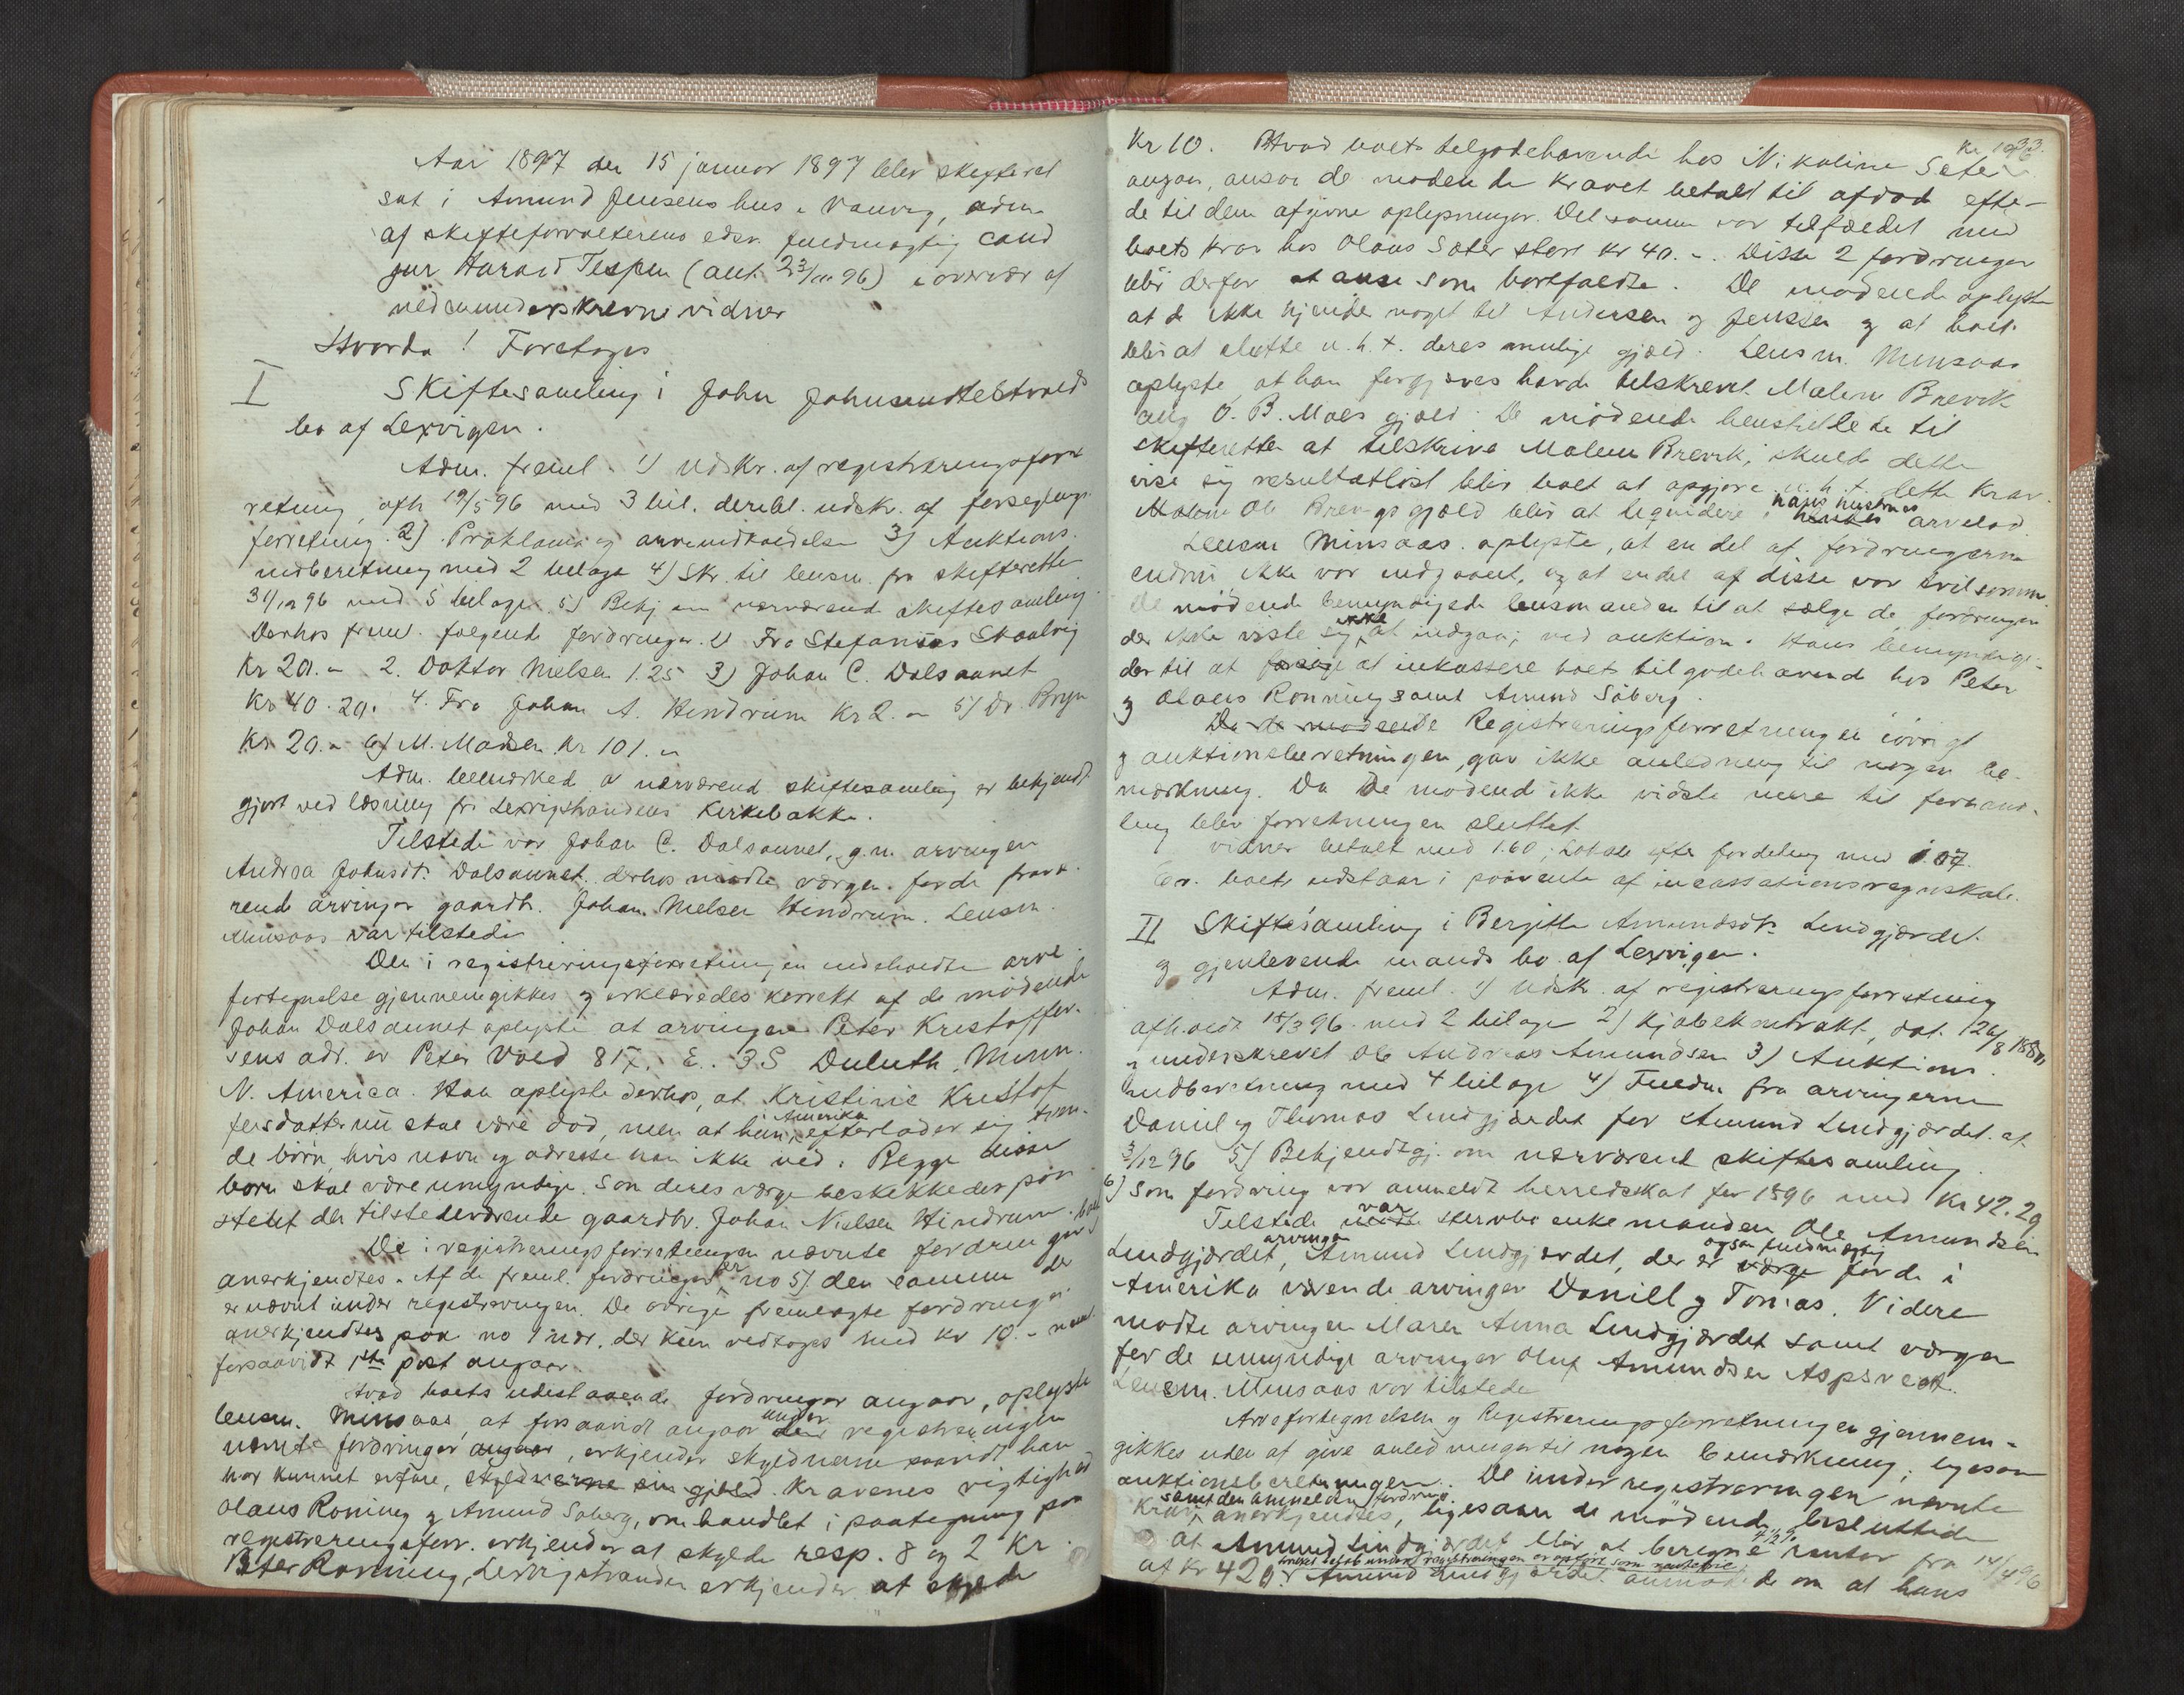 Aar 1897 den 15 januar 1897 blev skifteret
sat i Amund Jensens hus i Vanvig, adm.
af skifteforvalterens edsv. fuldmægtig cand
jur Harald Tespen (aut. 23/11 96) i overvær af
nedenunderskrevne vidner
Hvorda! Foretoges
I
Skiftesamling i John Johnsen Hestvolds
bo af Lexvigen.
Adm. freml. 1) Udskr. af registreringsfor
retning afh 19/5 96 med 3 bil. deribl. udskr. af forseglings
forretning. 2) Proklama og arveindkaldelse 3) Auktions.
indberetning med 2 bilage 4) Skr. til lensm. fra skifteretten
31/12 96 med 5 bilage. 5) Bekj om nærværende skiftesamling.
Derhos freml. følgende fordringer. 1) Fra Stefanias Skaalvig
Kr 20.- 2. Doktor Nielsen 1.25 3) Johan C. Dalsaunet
Kr 40.20. 4. Fra Johan A. Hindrum Kr 2.- 5) Dr. Bryn
Kr 20.- 6) M. Madsen Kr 101.-
Adm. bemærked at nærværend skiftesamling er bekjendt
gjort ved læsning fra Lexvigstrandens Kirkebakke.
Tilstede var Johan C. Dalsaunet, g.m. arvingen
Andrea Johnsdt. Dalsaunet. derhos mødte værgen for de fravæ-
rende arvinger gaardb. Johan Nielsen Hindrum. Lensm.
Minsaas var tilstede
Den i registreringsforretningen indeholdte arve
fortegnelse gjennemgikkes og erklæredes korrekt af de mødende
Johan Dalsaunet oplyste at arvingen Peter Kristoffer-
sens adr. er Peter Vold 817. E. 3S Duluth, Minn.
N. America. Han oplyste derhos, at Kristine Kristof
fersdatter nu skal være død, men at hun i Amerika efterlader sig
de børn, hvis navn og adresse han ikke ved. Begge disse
børn skal være umyndige. Som deres værge beskikkedes paa
stedet den tilstedeværende gaardbr. Johan Nielsen Hindrum.
De i registreringsforretningen nævnte fordringer
anerkjendtes. Af de freml. fordringer er no 5) den samme der
er nævnt under registreringen. De øvrige fremlagte fordringer
anerkjendtes paa no 1 nær, der kun vedtoges med kr 10.-
forsaavidt 1ste post angaar.
Hvad boets udestaaende fordringer angaar, oplyste
lensm. Minsaas, at forsaavidt angaar under registreringen
nævnte fordringer angaar, erkjender skyldnerne saavidt han
har kunnet erfare, skyldnerne sin gjæld. Kravenes rigtighed
Olaus Roning og Amund Saberg, omhandlet i paategning paa
registreringsforr. erkjender at skylde resp. 8 og 2 Kr.
Peter Ronning, Lexvigstranden erkjender at skylde
33.
Kr 10. Hvad boets tilgodehavende hos Nikoline Seter
angaar, ansaa de mødende kravet betalt til afdøde efte-
de til dem afgivne oplysninger. Det samme var tilfældet med
boets krav hos Olaus Sæter stort kr 40.-. Disse 2 fordringer
blir derfor at anse som bortfaldte. De mødende oplyste
at de ikke kjender noget til Andersen og Jenssen og at boet
blir at slutte u.h.t. deres mulige gjæld. Lensm. Minsaas
oplyste at han forgjæves havde tilskrevet Malene Brevik
ang O. B. Moes gjæld. De mødende henstillede til
skifteretten at tilskrive Malene Brevik, skulde dette
vise sig resultatløst blir boet at opgjøre u.h.t. dette krav.
Malene Ole Brevigs gjæld blir at liqvidere i hans hustrus arvelod
Lensm Minsaas oplyste, at en del af fordringerne
endnu ikke var indgaaet, og at endel af disse var tvilsomme.
De mødende bemyndigede lensmanden til at sælge de fordringer
der ikke viste sig ikke at indgaa; ved auktion. Hans bemyndige-
der til at forsøge at inkassere boets tilgodehavende hos Peter
og Olaus Ronning samt Amund Såberg.
Da de mødende Registreringsforretningen iøvrigt
og auktionsberetningen, gav ikke anledning til nogen be-
mærkning. Da de mødend ikke vidste mere til forhand-
ling blev forretningen sluttet.
Vidner betalt med 1.60; betale efter fordeling med 1.07.
boets udstaar i paavente af incassationsregnskab.
II Skiftesamling i Bergitte Amundsdt. Lundgjærdet
og gjenlevende mands bo af Lexvigen.
Adm. freml. 1) Udskr. af registreringsforretning
afholdt 18/3 96 med 2 bilage 2) Kjøbekontrakt, dat. 26/8 1880
underskrevet Ole Andreas Amundsen 3) Auktions.
indberetning med 4 bilage 4) Fuldm. fra arvingerne
Daniel og Thomas Lundgjærdet for Amund Lundgjærdet at
3/12 96 5) Bekjendtgj. om nærværend skiftesamling.
6) Som fordring var anmeldt herredsskat for 1896 med Kr 42.29
Tilstede var stervbo enkemanden Ole Amundsen
Lundgjærdet, arvingen Amund Lundgjærdet, der er også fuldmægtig for de i
Amerika værende arvinger Daniel og Tomas. Videre
mødte arvingen Maren Anna Lundgjærdet samt værgen
for de umyndige arvinger Oluf Amundsen Aspsveet.
Lensm. Minsaas var tilstede
Arvefortegnelsen og Registreringsforretningen gjennem-
gikkes uden at give anledninger til nogen bemærkning; ligesom
auktionsberetningen. De under registreringen nævnte
krav, samt den anmeldte fordring anerkjendtes, ligesom de mødende besluttede
at Amund Lindgjærdet blir at beregne 4 1/2 % renter fra 14/4 96
af kr 420. hvilket beløb under registreringen er opført som rentefrie. Amund Lindgjærdet anmodede om at hans